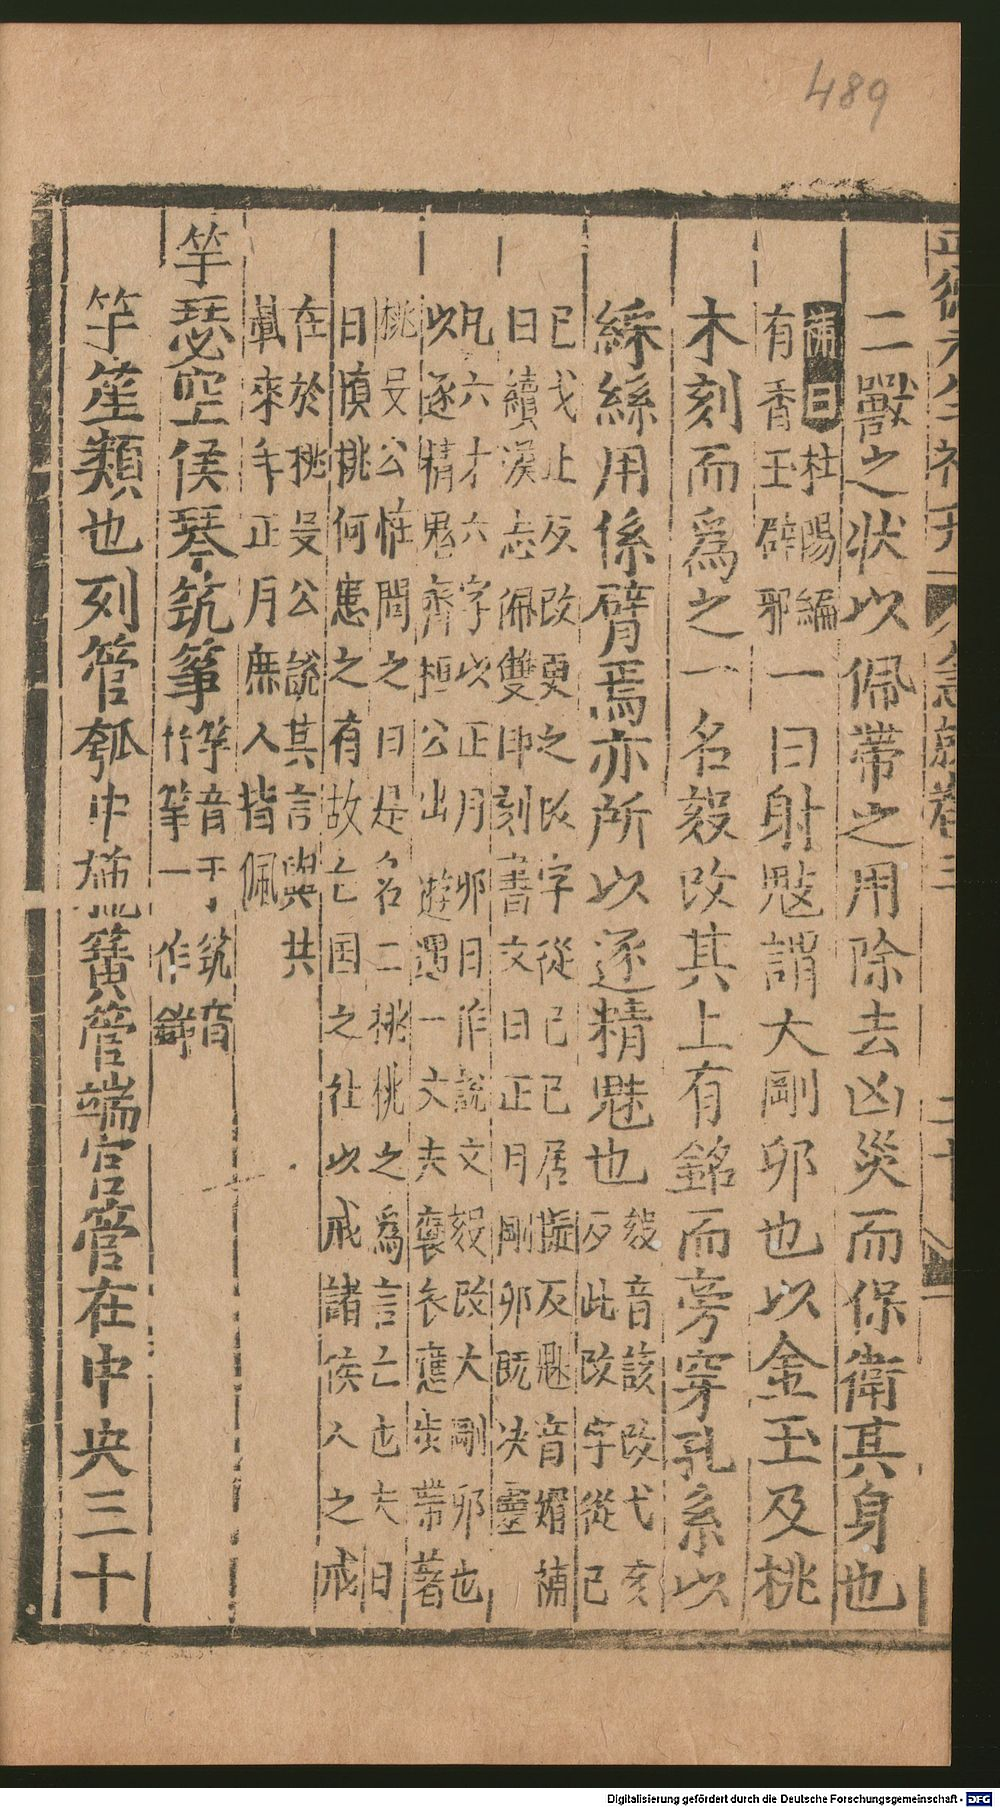 489
二獸之狀以佩帶之用除去凶災而保衛其身也
補曰杜陽編
有香玉辟邪一曰射鬾謂大剛卯也以金玉及桃
木刻而爲之一名㲃改其上有銘而旁穿孔系以
綵絲用係臂焉亦所以逐精魅也㲃音該改弋亥
反此改字從已
已戈止反改更之改字從己己居擬反鬾音媚補
曰續漢志佩雙印刻書文曰正月剛卯旣決靈
凡六才六字以正月卯日作說文㲃改大剛卯也
以逐精鬼齊桓公出遊遇一丈夫裒衣應步帶著
桃殳公恠問之曰是名二桃桃之爲言亡也夫日
日愼桃何患之有故亡国之社以戒諸侯人之戒
在於桃殳公説其言與共
載來年正月庶人皆佩
竽瑟空侯琴筑箏竽音于筑音
竹箏一作
竽笙類也列管瓠中施簧管端宮管在中央三十
Digitalisierung gefördert durch die Deutsche Forschungsgemeinschaft - DFG